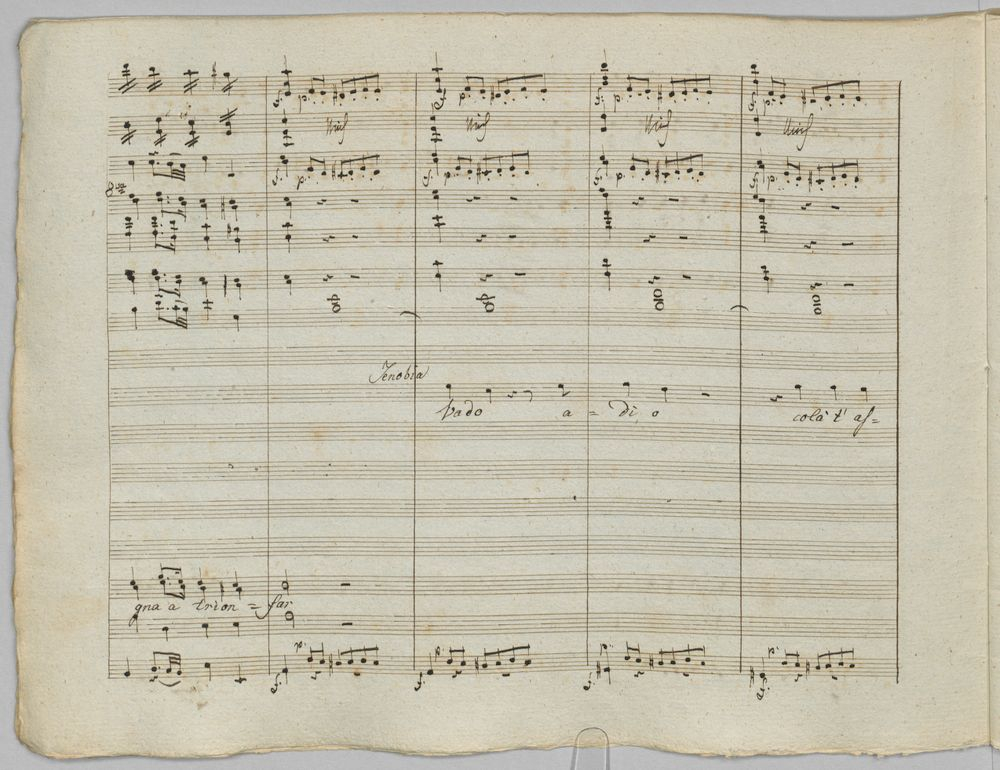 p.
p.
p.
p.
Unis
Unis
Unis
Unis
8va
p.
p.
p.
p.
Zenobia
Vado a = di o colà t' as=
gna a trion = far
p.
p.
p.
p.